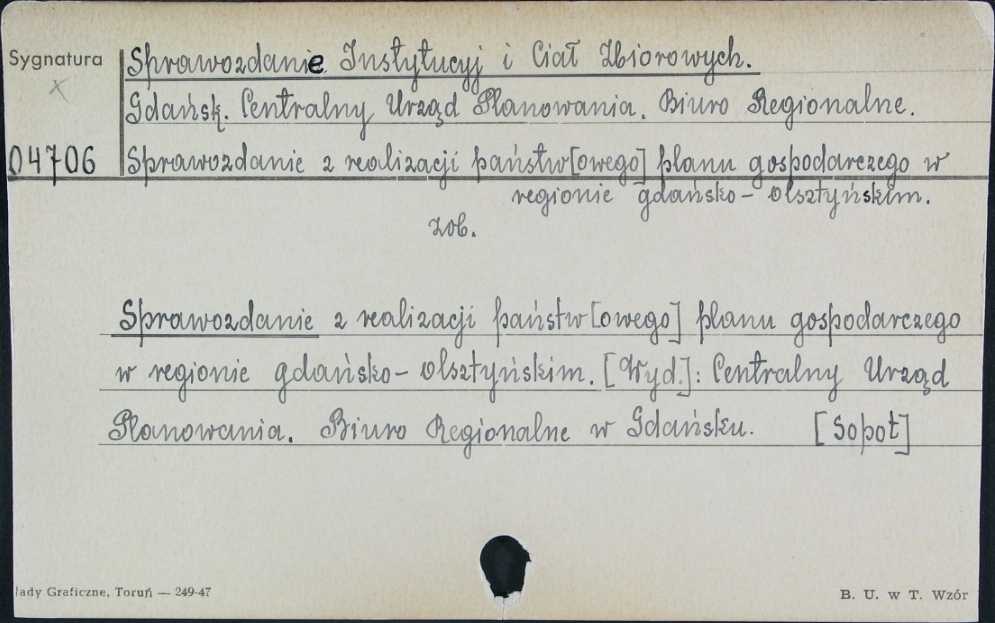 Sygnatura
Sprawozdanie Instytucyj i Ciał Zbiorowych.
Gdańsk. Centralny Urząd Planowania. Biuro Regionalne.
04706
Sprawozdanie z realizacji państw[owego] planu gospodarczego w
regionie gdańsko-olsztyńskim.
zob.
Sprawozdanie z realizacji państw[owego] planu gospodarczego
w regionie gdańsko-olsztyńskim. [Wyd.]: Centralny Urząd
Planowania. Biuro Regionalne w Gdańsku. [Sopot]
łady Graficzne, Toruń — 249-47
B. U. w T. Wzór